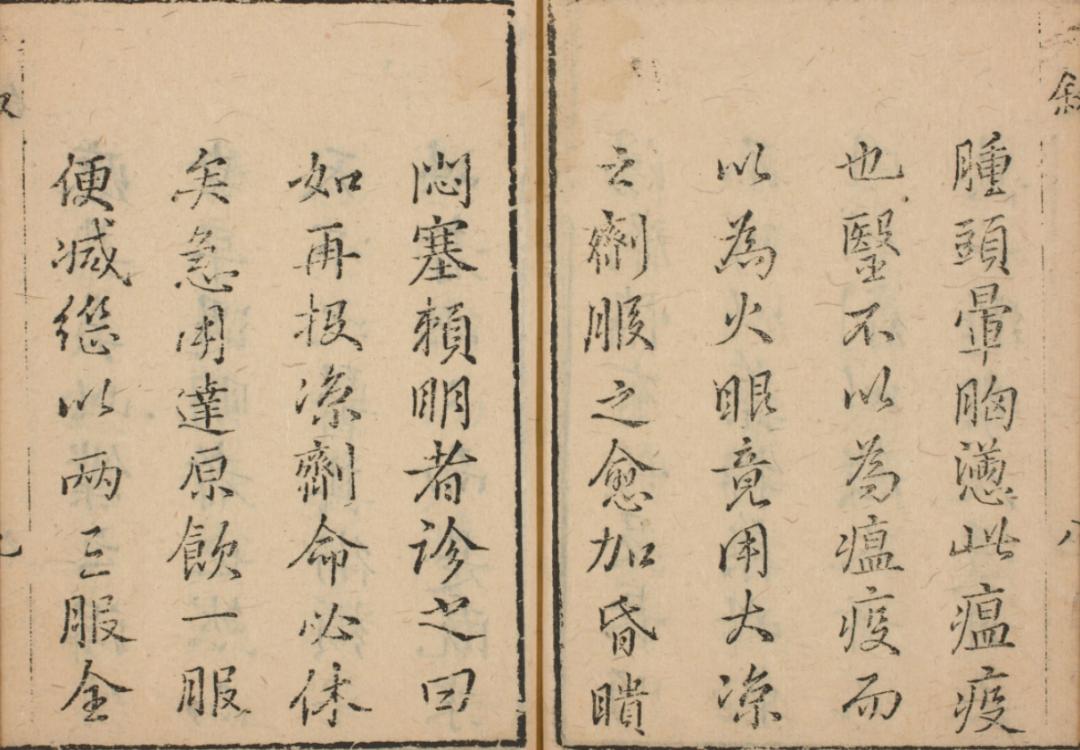 腫頭暈胸懣此瘟疫
也醫不以為瘟疫而
以為火眼竟用大凉
之劑服之愈加昏瞶
悶塞賴明者診之曰
如再投凉劑命必休
矣急用達原飲一服
便减繼以两三服全